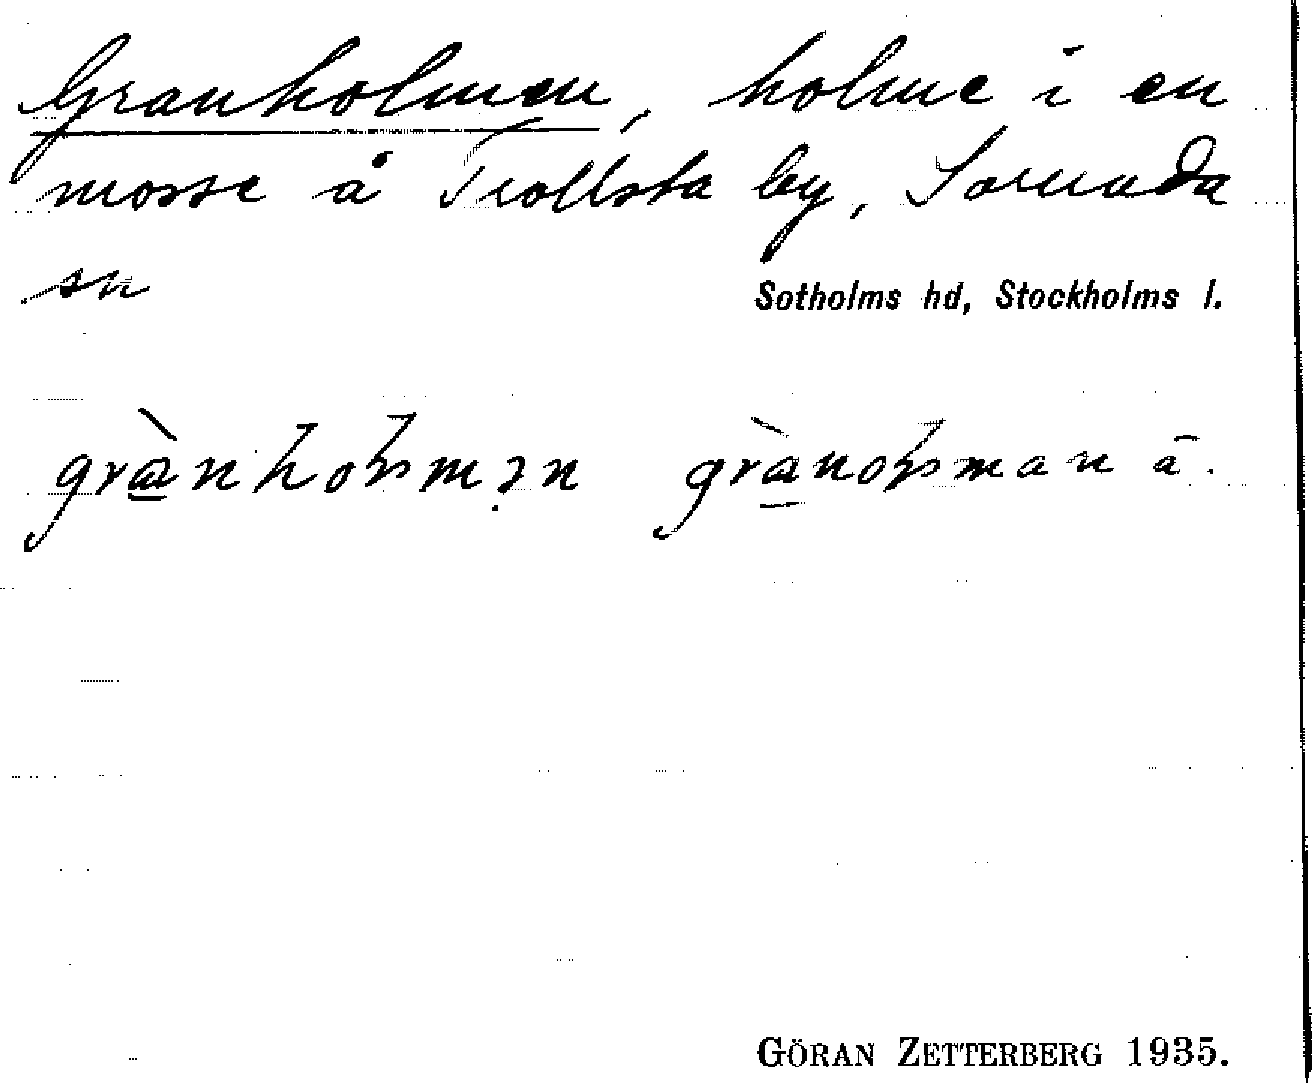 Granholmen, holme i en
mosse å Trollsta by, Sorunda
sn
Sotholms hd, Stockholms l.
GÖRAN ZETTERBERG 1935.